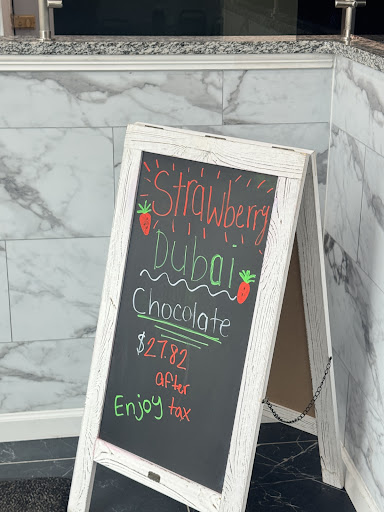 Strawberry
Dubai
Chocolate
$27.82
after
Enjoy tax